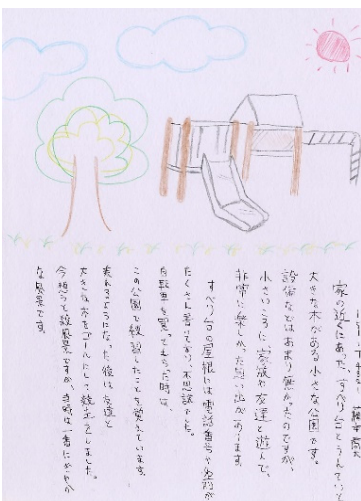 家の近くにあった、すべり台とうんてい
大きな木がある小さな公園です。
設備などはあまり無かったのですが、
小さいころに家族や友達と遊んで、
非常に楽しかった思い出があります。
すべり台の屋根には電話番号や住所が
たくさん書いてあり不思議でした。
自転車を買ってもらった時は、
この公園で練習したことを覚えています。
乗れるようになった後は友達と
大きな木をゴールにして競走をしました。
今想うと殺風景ですが、当時は一番にぎやか
な風景です。